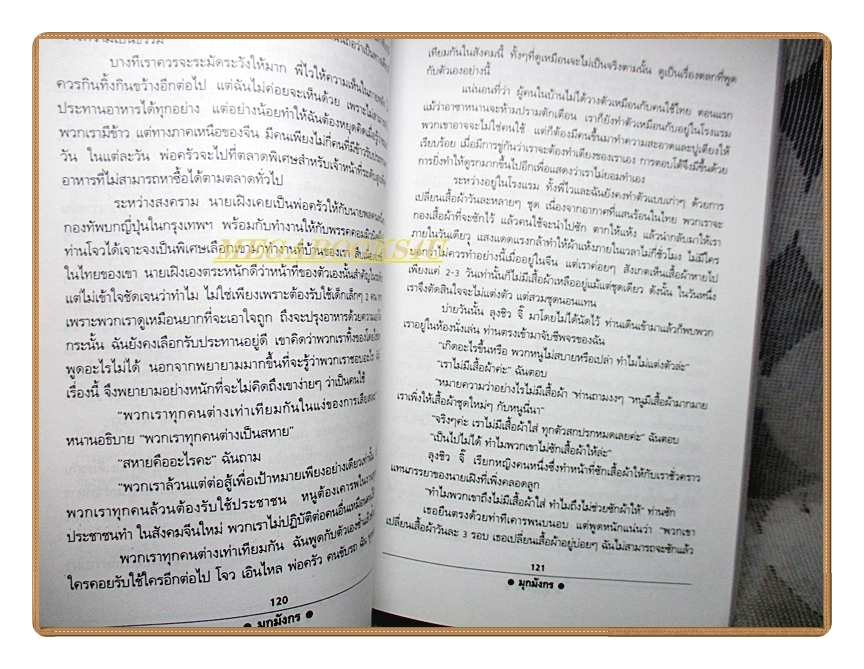 บางทีเราควรจะระมัดระวังให้มาก พี่ไวให้ความเห็นใน
ควรกินทิ้งกินขว้างอีกต่อไป แต่ฉันไม่ค่อยจะเห็นด้วย เพราะไม่
ประทานอาหารได้ทุกอย่าง แต่อย่างน้อยทำให้ฉันต้องหยุดคิดเมื่อ
พวกเรามีข้าว แต่ทางภาคเหนือของจีน มีคนเพียงไม่กี่คนที่มีข้าวรับประทาน
วัน ในแต่ละวัน พ่อครัวจะไปที่ตลาดพิเศษสำหรับเจ้าหน้าที่ระดับสูง
อาหารที่ไม่สามารถหาซื้อได้ตามตลาดทั่วไป
ระหว่างสงคราม นายเฝิงเคยเป็นพ่อครัวให้กับนายพล
กองทัพบกญี่ปุ่นในกรุงเทพฯ พร้อมกับทำงานให้กับพรรคคอมมิวนิสต์
ท่านโจวได้เจาะจงเป็นพิเศษเลือกเขามาทำงานที่บ้านของเรา
ในไทยของเขา นายเฝิงเองตระหนักดีว่าหน้าที่ของตัวเองนั้นสำคัญ
แต่ไม่เข้าใจชัดเจนว่าทำไม ไม่ใช่เพียงเพราะต้องรับใช้เด็กเล็กๆ 2 คน
เพราะพวกเราดูเหมือนยากที่จะเอาใจถูก ถึงจะปรุงอาหารด้วยความ
กระนั้น ฉันยังคงเลือกรับประทานอยู่ดี เขาคิดว่าพวกเราทิ้งของโดย
พูดอะไรไม่ได้ นอกจากพยายามมากขึ้นที่จะรู้ว่าพวกเราชอบอะไร
เรื่องนี้ จึงพยายามอย่างหนักที่จะไม่คิดถึงเขาง่ายๆ ว่าเป็นคนใช้
"พวกเราทุกคนต่างเท่าเทียมกันในแง่ของการเสียสละ"
หนานอธิบาย "พวกเราทุกคนต่างเป็นสหาย"
"สหายคืออะไรคะ" ฉันถาม
"พวกเราล้วนแต่ต่อสู้เพื่อเป้าหมายเพียงอย่างเดียวเท่านั้น
พวกเราทุกคนล้วนต้องรับใช้ประชาชน หนูต้องเคารพใน
ประชาชนทำ ในสังคมจีนใหม่ พวกเราไม่ปฏิบัติต่อคนอื่นเหมือน
พวกเราทุกคนต่างเท่าเทียมกัน ฉันพูดกับตัวเองซ้ำแล้ว
ใครคอยรับใช้ใครอีกต่อไป โจว เอินไหล พ่อครัว คนขับรถ ฉัน
120
● มุกมังกร ●
เทียมกันในสังคมนี้ ทั้งๆที่ดูเหมือนจะไม่เป็นจริงตามนั้น ดูเป็นเรื่องตลกที่พูด
กับตัวเองอย่างนี้
แน่นอนที่ว่า ผู้คนในบ้านไม่ได้วางตัวเหมือนกับคนใช้ไทย ตอนแรก
แม้ว่าอาซาหนานจะห้ามปรามตักเตือน เราก็ยังทำตัวเหมือนกับอยู่ในโรงแรม
พวกเขาอาจจะไม่ใช่คนใช้ แต่ก็ต้องมีคนขึ้นมาทำความสะอาดและปูเตียงให้
เรียบร้อย เมื่อมีการขู่กันว่าเราจะต้องทำเตียงของเราเอง การตอบโต้จึงมีขึ้นด้วย
การยิ่งทำให้ดูรกมากขึ้นไปอีกเพื่อแสดงว่าเราไม่ยอมทำเอง
ระหว่างอยู่ในโรงแรม ทั้งพี่ไวและฉันยังคงทำตัวแบบเก่าๆ ด้วยการ
เปลี่ยนเสื้อผ้าวันละหลายๆ ชุด เนื่องจากอากาศที่แสนร้อนในไทย พวกเราจะ
กองเสื้อผ้าที่จะซักไว้ แล้วคนใช้จะนำไปซัก ตากให้แห้ง แล้วนำกลับมาให้เรา
ภายในวันเดียว แสงแดดแรงกล้าทำให้ผ้าแห้งภายในเวลาไม่กี่ชั่วโมง ไม่มีใคร
บอกว่าไม่ควรทำอย่างนี้เมื่ออยู่ในจีน แต่เราค่อยๆ สังเกตเห็นเสื้อผ้าหายไป
เพียงแค่ 2-3 วันเท่านั้นก็ไม่มีเสื้อผ้าเหลืออยู่แม้แต่ชุดเดียว ดังนั้น ในวันหนึ่ง
เราจึงตัดสินใจจะไม่แต่งตัว แต่สวมชุดนอนแทน
บ่ายวันนั้น ลุงชิว จี๊ มาโดยไม่ได้นัดไว้ ท่านเดินเข้ามาแล้วก็พบพวก
เราอยู่ในห้องนั่งเล่น ท่านตรงเข้ามาจับชีพจรของฉัน
"เกิดอะไรขึ้นหรือ พวกหนูไม่สบายหรือเปล่า ทำไมไม่แต่งตัวล่ะ"
"เราไม่มีเสื้อผ้าค่ะ" ฉันตอบ
"หมายความว่าอย่างไรไม่มีเสื้อผ้า "ท่านถามงงๆ "หนูมีเสื้อผ้ามากมาย
เราเพิ่งให้เสื้อผ้าชุดใหม่ๆ กับหนูนี่นา"
"จริงๆค่ะ เราไม่มีเสื้อผ้าใส่ ทุกตัวสกปรกหมดเลยค่ะ" ฉันตอบ
"เป็นไปไม่ได้ ทำไมพวกเขาไม่ซักเสื้อผ้าให้ล่ะ"
ลุงชิว จี๊ เรียกหญิงคนหนึ่งซึ่งทำหน้าที่ซักเสื้อผ้าให้กับเราชั่วคราว
แทนภรรยาของนายเฝิงที่เพิ่งคลอดลูก
"ทำไมพวกเขาถึงไม่มีเสื้อผ้าใส่ ทำไมถึงไม่ช่วยซักผ้าให้" ท่านซัก
เธอยืนตรงด้วยท่าทีเคารพนบนอบ แต่พูดหนักแน่นว่า "พวกเขา
เปลี่ยนเสื้อผ้าวันละ 3 รอบ เธอเปลี่ยนเสื้อผ้าอยู่บ่อยๆ ฉันไม่สามารถจะซักแล้ว
121
● มุกมังกร ●